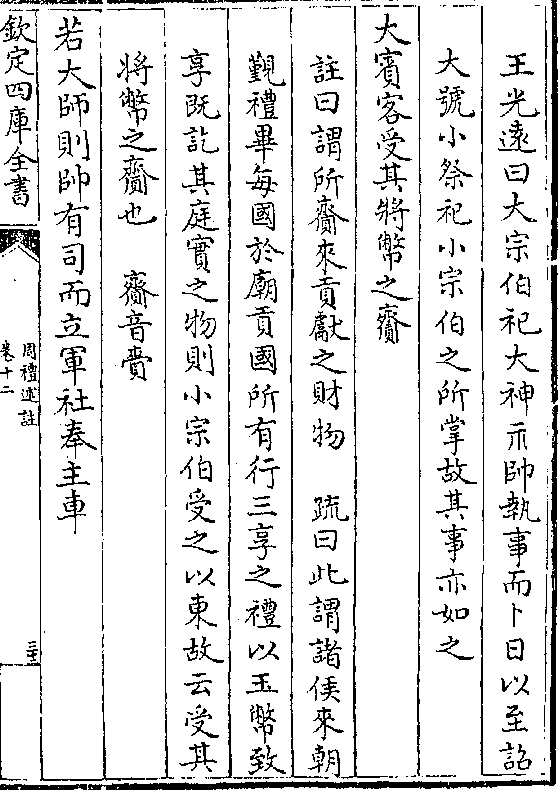 王光遠曰大宗伯祀大神示帥執事而卜日以至詔
大號小祭祀小宗伯之所掌故其事亦如之
大賓客受其將幣之齎
註曰謂所齎來貢獻之財物　疏曰此謂諸侯來朝
覲禮畢每國於廟貢國所有行三享之禮以玉幣致
享既訖其庭實之物則小宗伯受之以東故云受其
將幣之齎也　齎音賫
若大師則帥有司而立軍社奉主車
欽定四庫全書
周禮述註
卷十二
三十